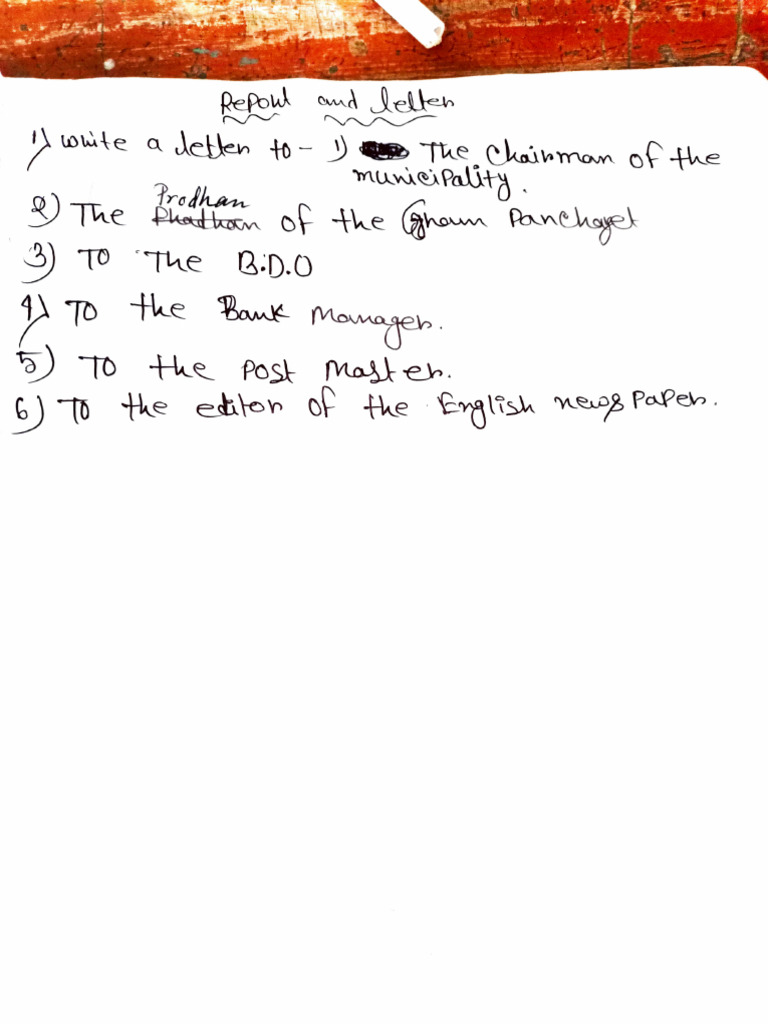 Report and letter
1) write a letter to - 1) The Chairman of the
municipality.
Prodhan
2) The Phadhan of the Gram Panchayet
3) TO The B.D.O
4) TO the Bank Manager.
5) TO the Post Master.
6) TO the editor of the English news Paper.